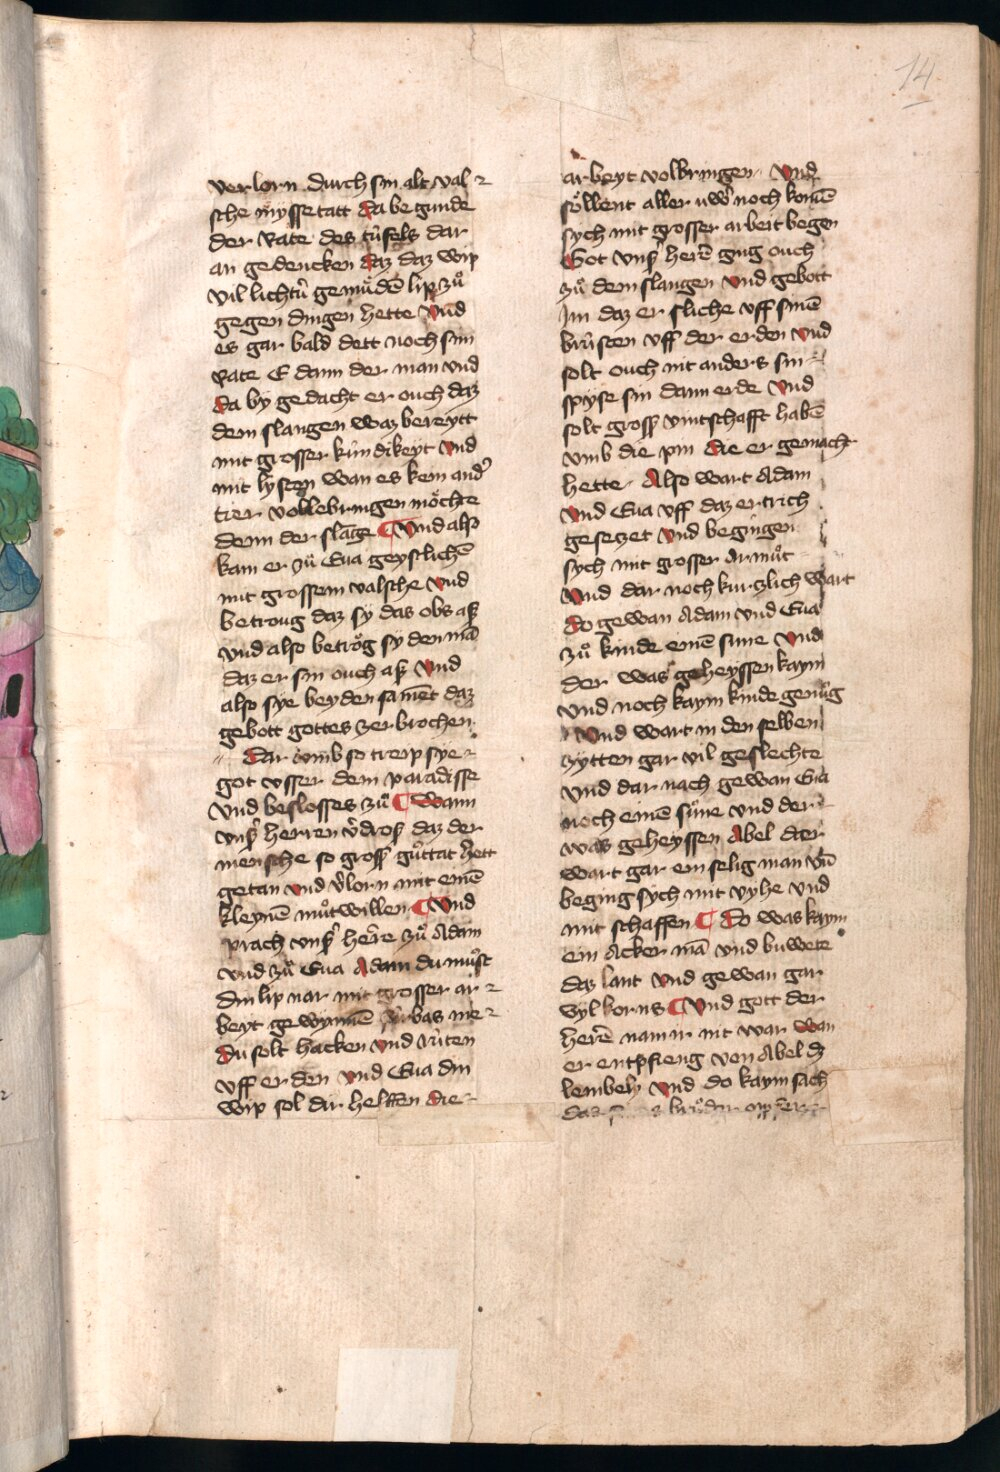 14
verlorn durch sin alt val-
sche myssetatt da begunde
der Rate des tüfels dar
an gedencken daz daz wip
vil lichtũ gemüdē lip zů
gegen dingen hette vnd
es gar bald dett noch sim
Rate E dann der man vnd
da by gedacht er ouch daz
dem slangen waz bereytt
mit grosser kündikeyt vnd
mit lysten wan es kem and᾽
tier vollebringen möchte
denn der slāge ¶ Vnd also
kam er zů Eua geystlichē
mit grossem valsche vnd
betroug daz sy das obs aß
vnd also betrög sy den mā
daz er sin ouch aß vnd
also sye beyden samēt daz
gebott gottes zerbrochen
Dar vmb so treip sye
got vsser dem paradisse
vnd beslosses zů ¶ Wann
vnß᾽ herren v᾽droß daz der
mensche so groß gůttat hett
getan vnd v᾽lorn mit einē
kleynē můtwillen ¶ Vnd
sprach vnß᾽ herre zů Adam
vnd zů Eua Adam du můst
din lip nar mit grosser ar-
beyt gewynnē fürbas me
du solt hacken vnd rüten
vff erden vnd Eua din
wip sol dir helffen die
arbeyt volbringen vnd
söllent aller uwer noch komē
sych mit grosser arbeit begen
Got vnß᾽ herē ging ouch
zů dem slangen vnd gebott
Im daz er sliche vff sinē
brüsten vff der erden vnd
solt ouch nit anders sin
spyse sin dann erde vnd
solt groß vintschafft habē
vmb die pin die er gemacht
hette Also wart Adam
vnd Eua vff daz ertrich
gesezet vnd begingen
sych mit grosser armůt
vnd dar noch kurzlich wart
do gewan Adam vnd Eua
zů kinde einē sune vnd
der was geheyssen kaym
vnd noch kaym kinde genůg
vnd wart in den selben
zytten gar vil geslechte
vnd dar nach gewan Eua
noch einē sůne vnd der
was geheyssen Abel der
wart gar ein selig man vn̄
beging sych mit vyhe vnd
mit schaffen ¶ Do was kaym
ein Acker mā vnd buwete
daz lant vnd gewan gar
vyl korns ¶ Vnd gott der
herē nam ir nit war wan
er entpfieng von Abel dz
lembely vnd do kaym sach
das brůder opfer